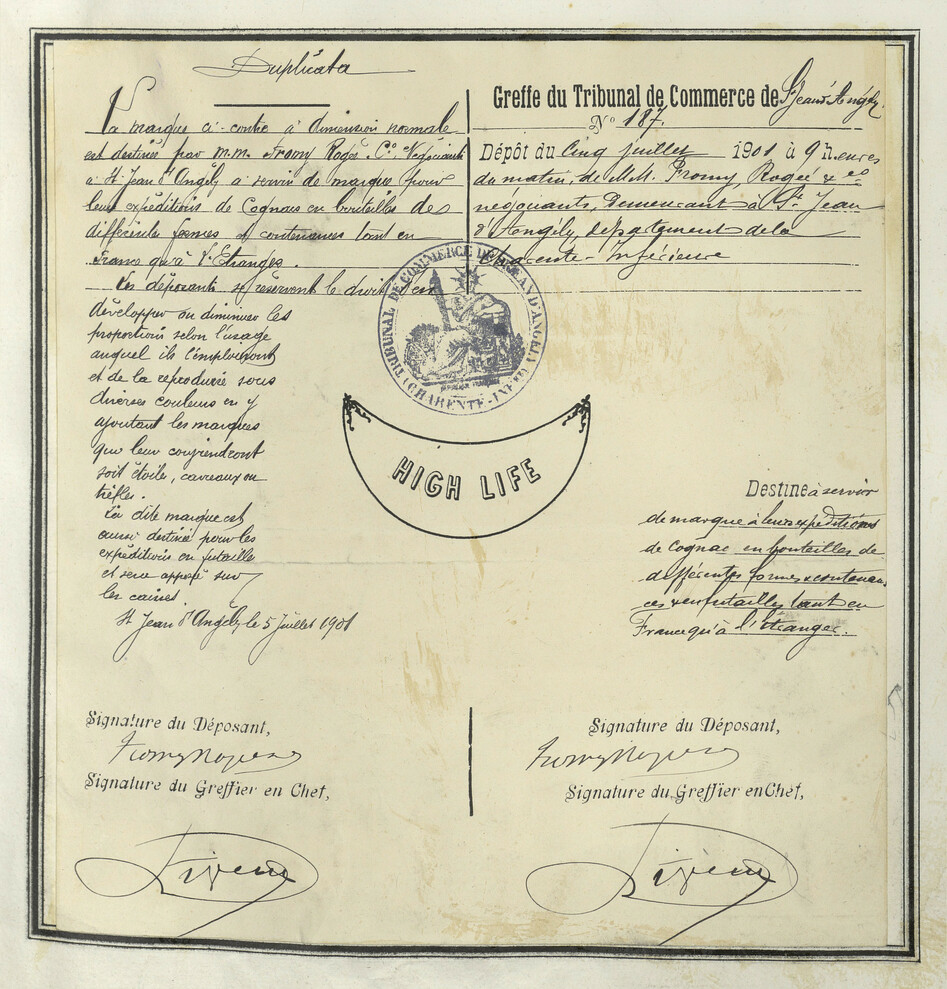 Duplicata
La marque ci-contre à dimension normale
est destinée par M.M. Fromy Rogée & Cº, Négociants
à St Jean d'Angély à servir de marque pour
leurs expéditions de Cognacs en bouteilles des
différentes formes et contenances tant en
France qu'à l'Etranger.
Les déposants se réservent le droit d'en
développer ou diminuer les
proportions selon l'usage
auquel ils l'emploieront
et de la reproduire sous
diverses couleurs en y
ajoutant les marques
que leur conviendront
soit étoile, carreaux ou
trèfles.
La dite marque est
aussi destinée pour les
expéditions en futaille
et sera apposée sur
les caisses
St Jean d'Angély, le 5 Juillet 1901
Greffe du Tribunal de Commerce de St Jean d'Angély
Nº 187.
Dépôt du Cinq juillet 1901 à 9 heures
du matin, de MM. Fromy, Rogée & Cº
négociants, demeurant à St Jean
d'Angély, département de la
Charente-Inférieure
TRIBUNAL DE COMMERCE DE St JEAN D'ANGELY
(CHARENTE-INFRE)
HIGH LIFE
Destiné à servir
de marque à leurs expéditions
de Cognac en bouteilles de
différentes formes & contenan-
ces & en futailles tant en
France qu'à l'étranger.
Signature du Déposant,
Fromy Rogée
Signature du Greffier en Chef,
Signature du Déposant,
Fromy Rogée
Signature du Greffier en Chef,